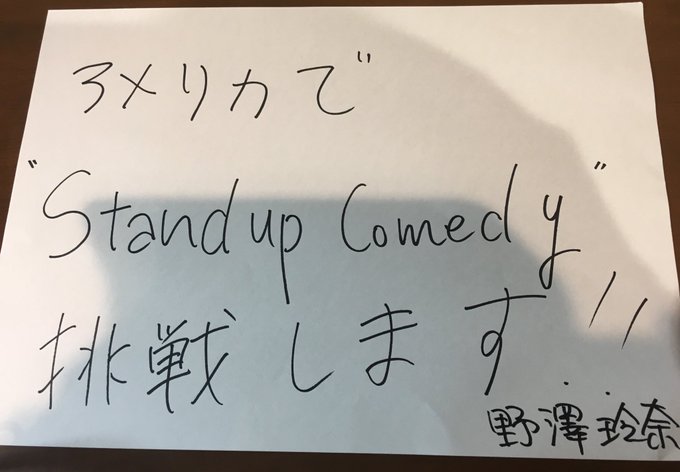 アメリカで
"Standup Comedy"
挑戦します!!
野澤玲奈